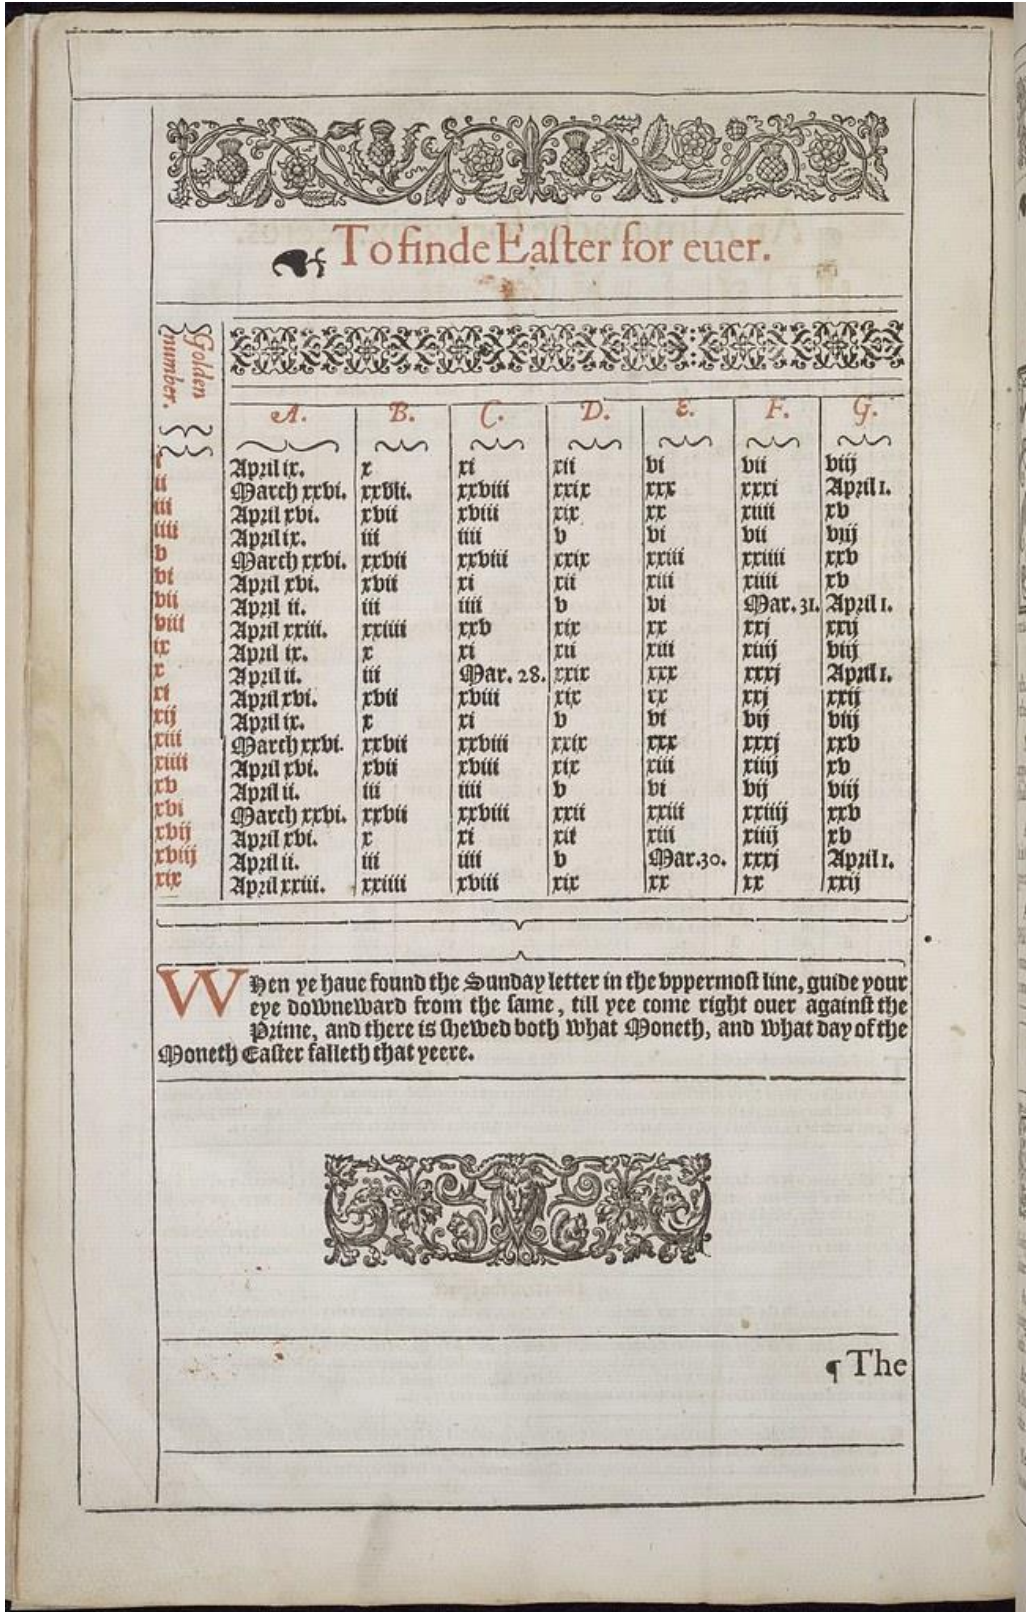 To finde Easter for euer.
Golden
number.
A. B. C. D. E. F. G.
i April ix. x xi xii vi vii viij
ii March xxvi. xxvii. xxviii xxix xxx xxxi April 1.
iii April xvi. xvii xviii xix xx xiiii xv
iiii April ix. iii iiii v vi vii viij
v March xxvi. xxvii xxviii xxix xxiii xxiiii xxv
vi April xvi. xvii xi xii xiii xiiii xv
vii April ii. iii iiii v vi Mar. 31. April 1.
viii April xxiii. xxiiii xxv xix xx xxj xxij
ix April ix. x xi xii xiii xiiij viij
x April ii. iii Mar. 28. xxix xxx xxxj April 1.
xi April xvi. xvii xviii xix xx xxj xxij
xij April ix. x xi v vi vij viij
xiii March xxvi. xxvii xxviii xxix xxx xxxj xxv
xiiii April xvi. xvii xviii xix xiii xiiij xv
xv April ii. iii iiii v vi vij viij
xvi March xxvi. xxvii xxviii xxii xxiii xxiiij xxv
xvij April xvi. x xi xii xiii xiiij xv
xviij April ii. iii iiii v Mar.30. xxxj April 1.
xix April xxiii. xxiiii xviii xix xx xx xxij
WHen ye haue found the Sunday letter in the vppermost line, guide your
eye downeward from the same, till yee come right ouer against the
Prime, and there is shewed both what Moneth, and what day of the
Moneth Easter falleth that yeere.
¶ The